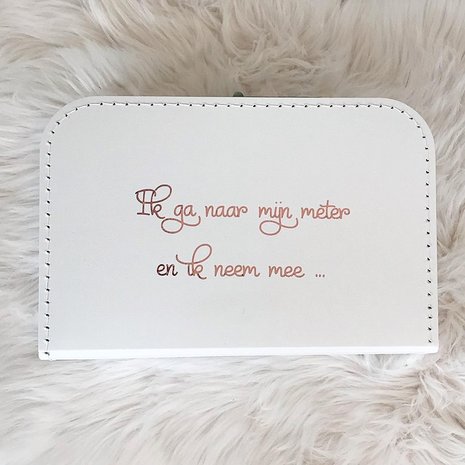 Ik ga naar mijn meter
en ik neem mee ...